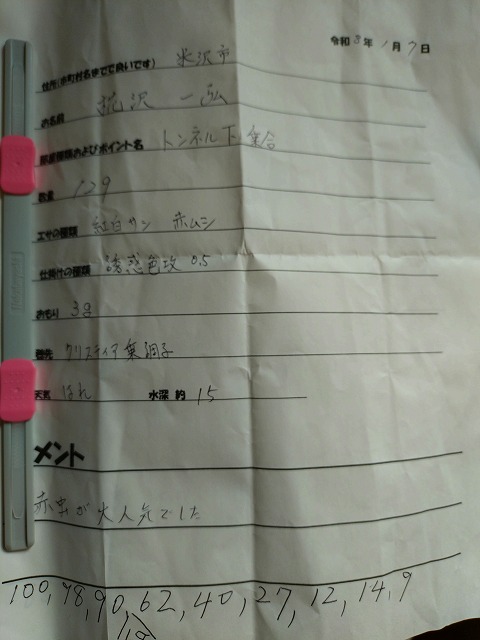 令和3年1月7日
住所(市町村名まででで良いです) 米沢市
お名前 沢 一弘
部屋種類およびポイント名 トンネル下 集合
数量 129
エサの種類 紅白サシ 赤ムシ
仕掛けの種類 誘惑色攻 0.5
おもり 3g
穂先 クリスティア 葉調子
天気 はれ 水深 約 15
メント
赤虫が大人気でした
100, 98, 90, 62, 40, 27, 12, 14, 9